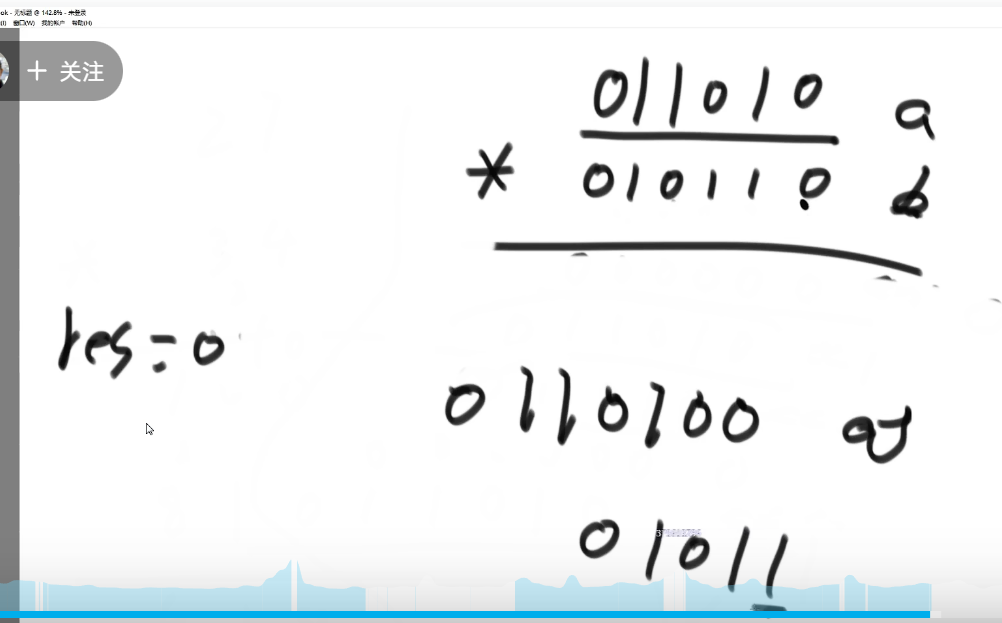 ok - 无标题 @ 142.8% - 未登录
窗口(W) 我的帐户 帮助(H)
+ 关注
011010 a
* 010110 b
res=0
0110100 a
01011